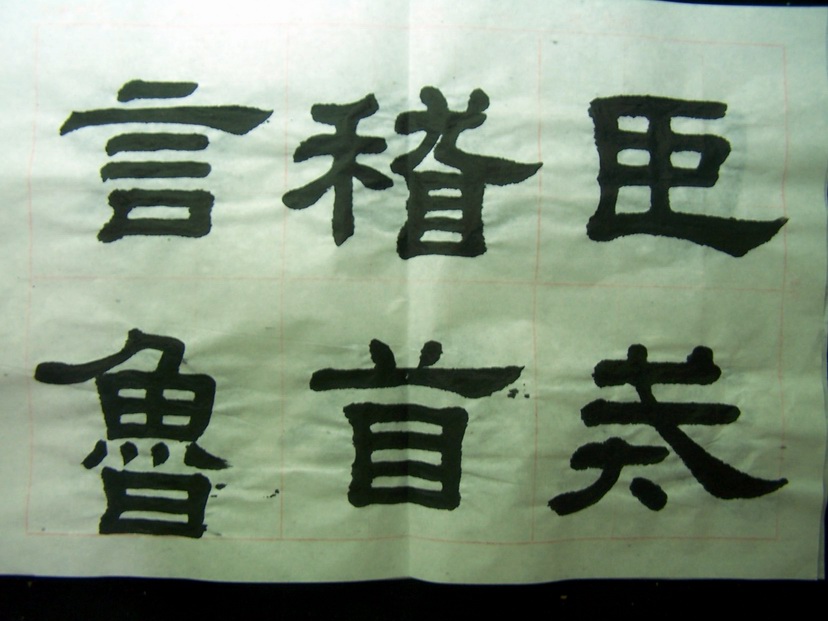 臣戒
稽首
言魯